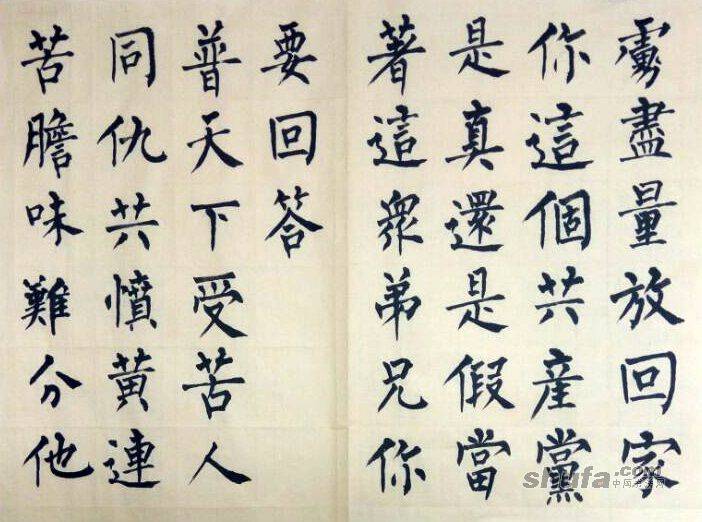 虜盡量放回家
你這個共產黨
是真還是假當
著這眾弟兄你
要回答
普天下受苦人
同仇共憤黃連
苦膽味難分他
shufa.com
中国书法网